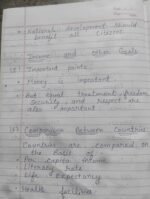 • National development should
benefit all citizens.
Income and other Goals
Important points
• Money is important
• But equal treatment, freedom
Security, and respect are
also important
Comparison Between Countries
Countries are compared on
the basis of
• Per Capita Income
• Literacy Rate
• Life Expectancy
• Health facilities